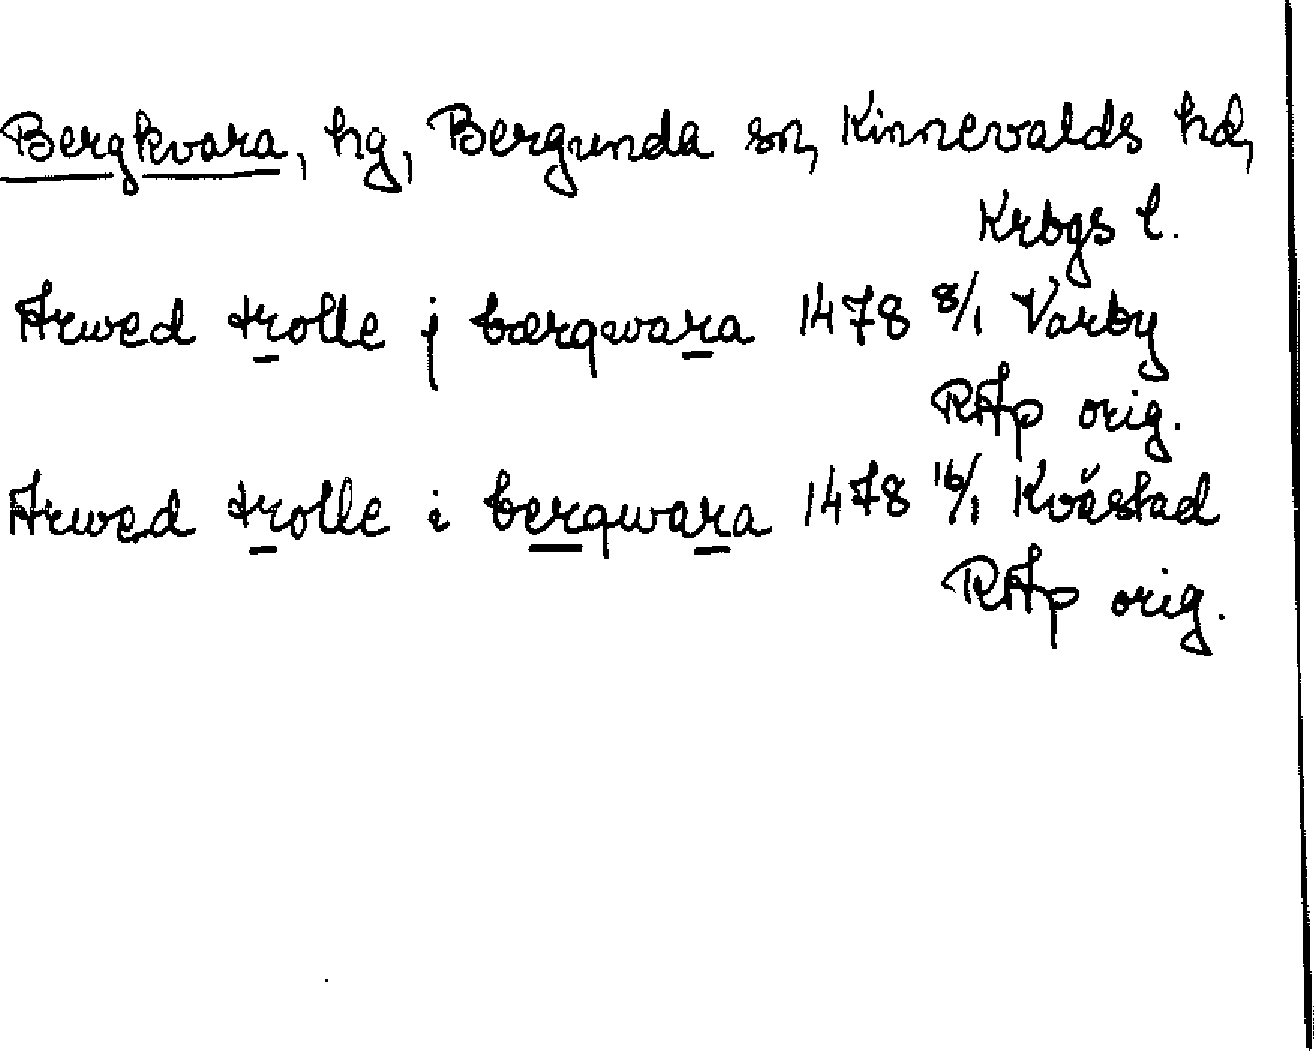 Bergkvara, hg, Bergunda sn, Kinnevalds hd,
Krbgs l.
Arwed trolle j bærqwara 1478 8/1 Varby
RAp orig.
Arwed trolle i berqwara 1478 16/1 Kvästad
RAp orig.